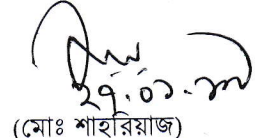 ২৭.০১.
(মোঃ শাহরিয়াজ)